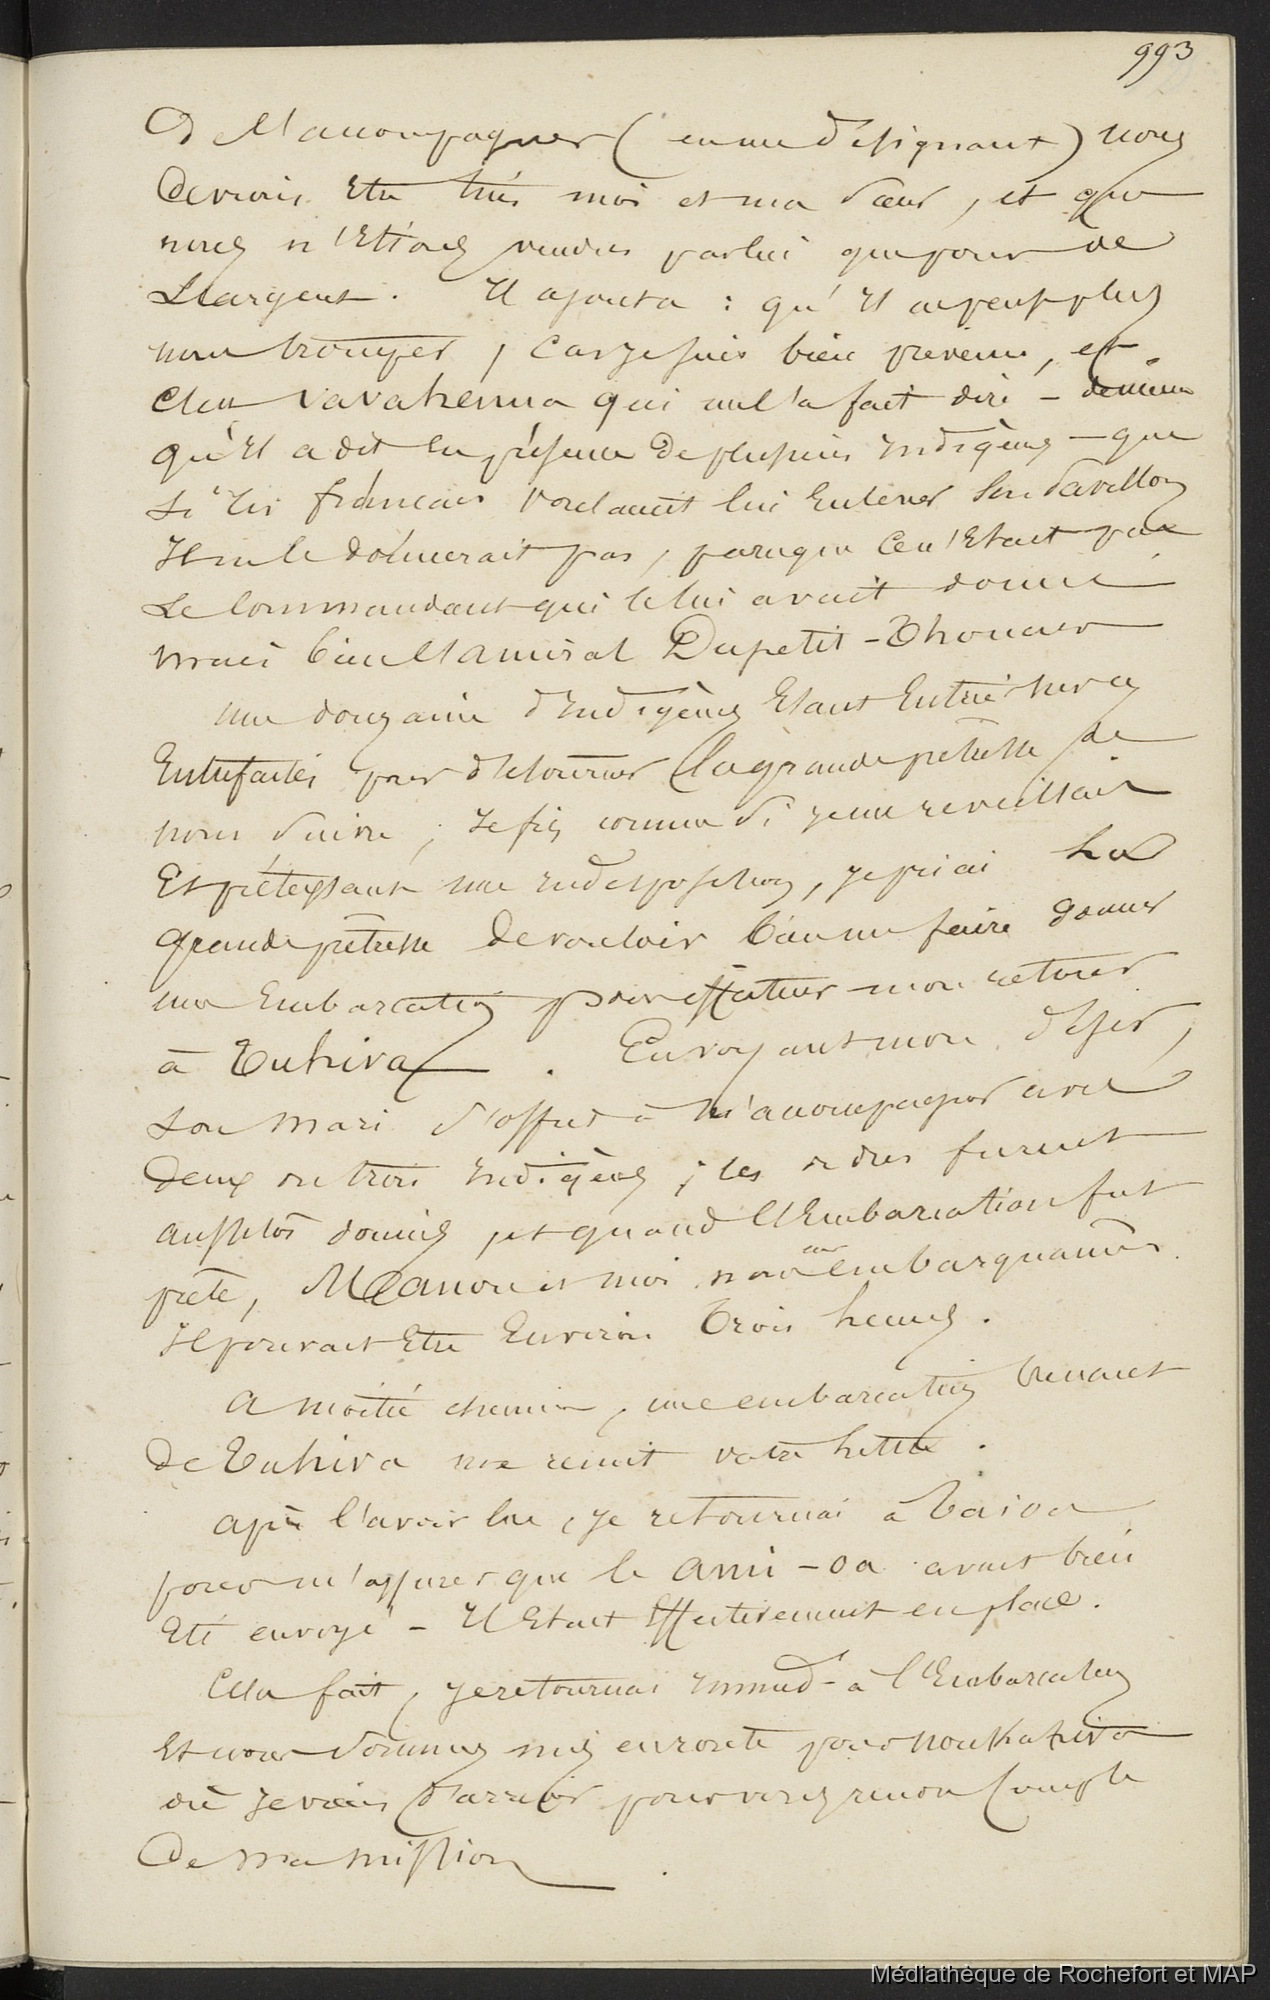 993
De l'accompagner (en me désignant) nous
devions Etre tués moi et ma sœur, et que
nous n'Etions vendus par lui que pour de
L'argent. Il ajouta : qu'Il ne peut plus
nous tromper, car je suis bien prévenu, et
C'est Vavahenua qui me l'a fait dire - de même
qu'Il a dit En présence De plusieurs Indigènes - que
Si les français voulaient lui Enlever Son Pavillon
Il ne le donnerait pas, parceque Ce n'Etait pas
Le Commandant qui le lui avait donné
mais bien l'amiral Dupetit-Thouars
une douzaine d'Indigènes Etant Entrés
Entrefaites pour détourner la grande prêtresse de
nous suivre, Je fis comme si je me reveillais
Et prétextant une Indisposition, je priai La
Grande prêtresse De vouloir bien me faire donner
une Embarcation pour effectuer mon retour
à Tuhiva. En voyant mon désir,
Son Mari s'offrit à M'accompagner avec
Deux ou trois Indigènes ; les ordres furent
aussitôt donnés, et quand l'Embarcation fut
prête, Manou et moi nous embarquames.
Il pouvait Etre Environ Trois heures.
A moitié chemin, une embarcation Venant
De Tuhiva me remit votre lettre.
après l'avoir lue, je retournai à Vaioa
pour m'assurer que le ami-oa avait bien
Eté envoyé - Il Etait Effectivement en place.
Cela fait, je retournai immédt à l'Embarcation
Et nous sommes mis en route pour Noukahiva
où Je viens d'arriver pour vous rendre Compte
De Ma Mission.
Médiathèque de Rochefort et MAP